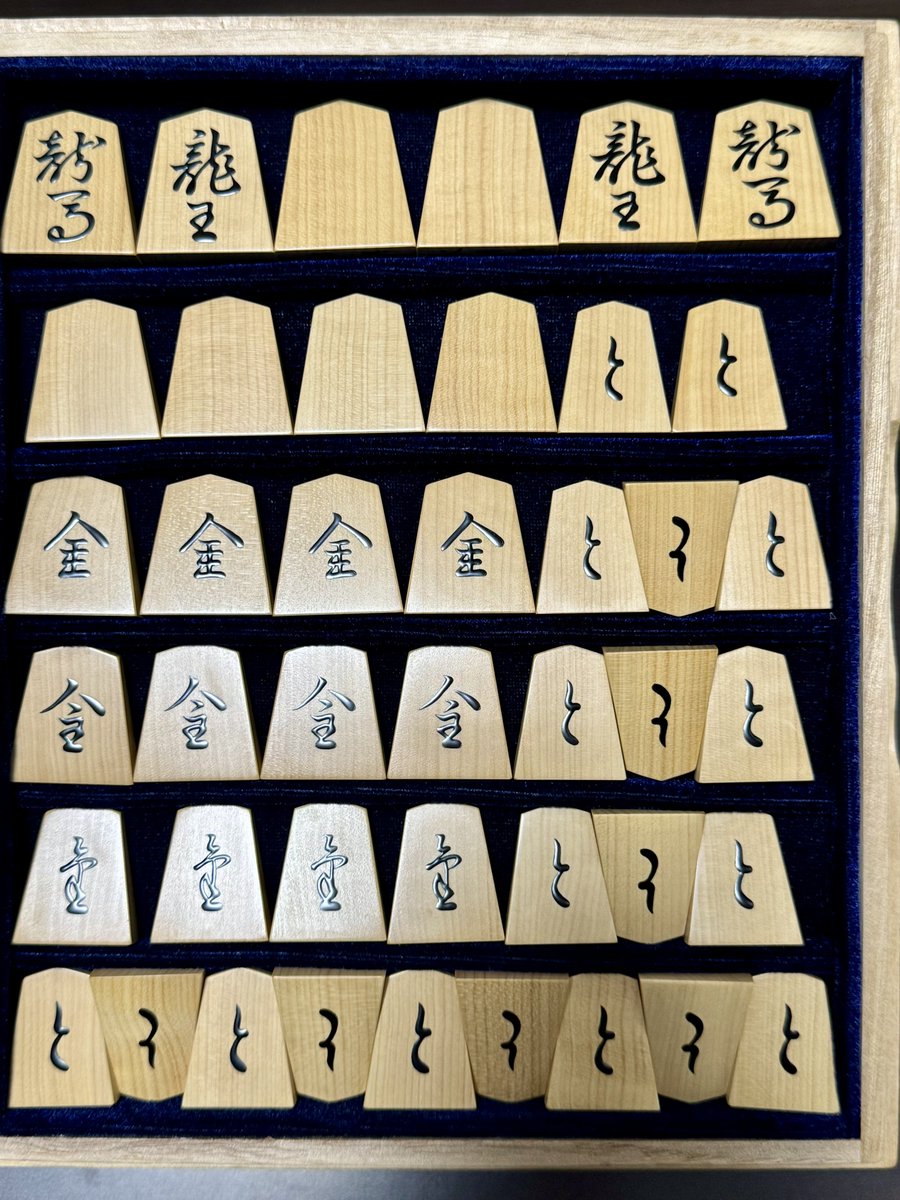 龍馬 龍王 龍王 龍馬
と と
金 金 金 金 と と と
金 金 金 金 と と と
金 金 金 金 と と と
と と と と と と と と と